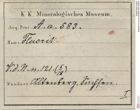 K.K. Mineralogisches Museum.
Acq. Post A.a. 583.
Name Fluorit
Altenberg, Sachsen